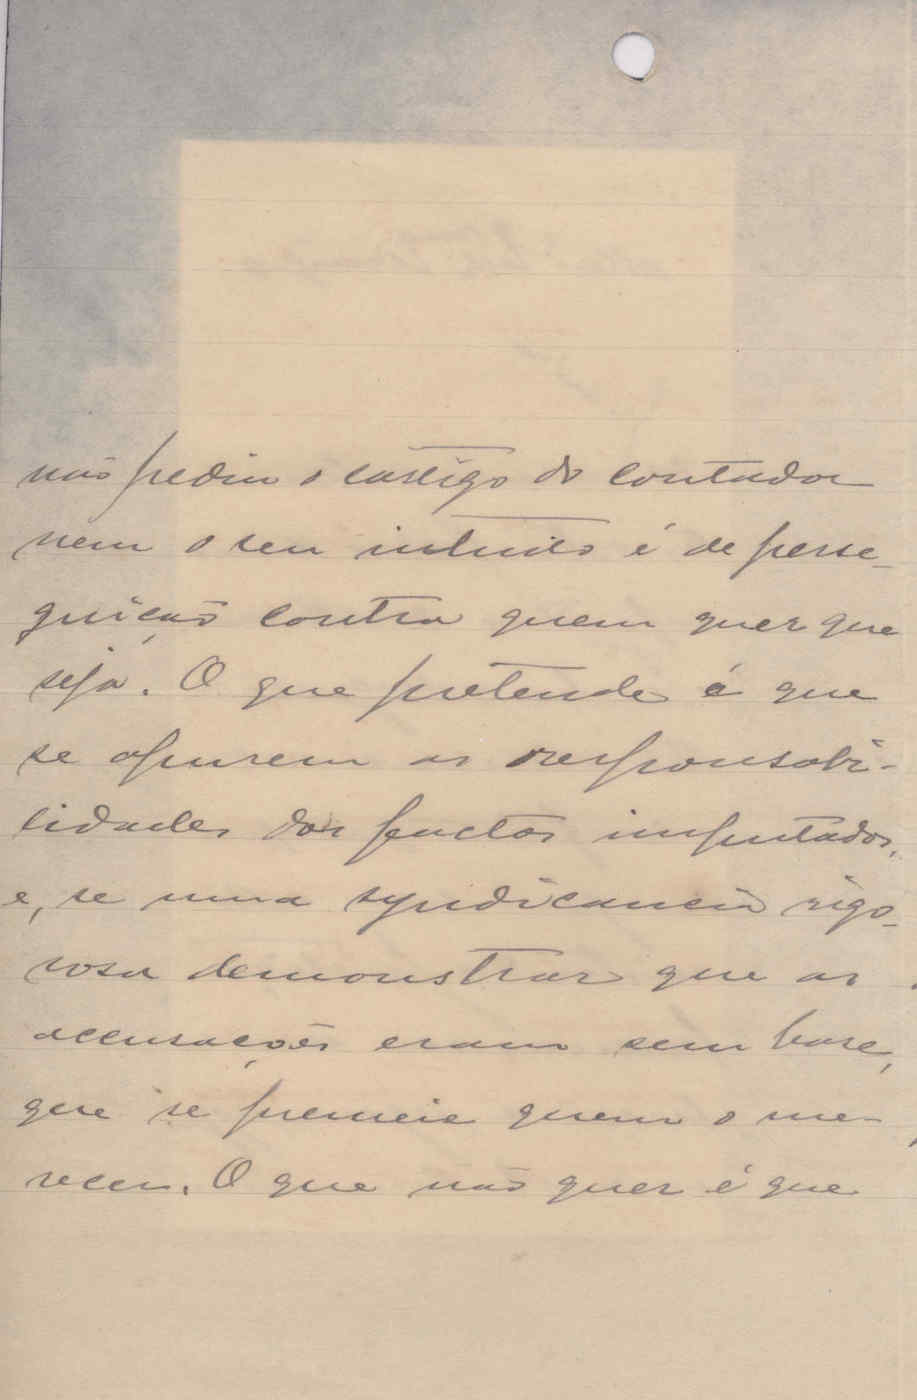 não pediu o castigo do contador
nem o seu intuito é de perse-
guição contra quem quer que
seja. O que pretende é que
se apurem as responsabi-
lidades dos factos imputados,
e, se uma syndicancia rigo-
rosa demonstrar que as
accusações eram sem base,
que se premeie quem o me-
receu. O que não quer é que